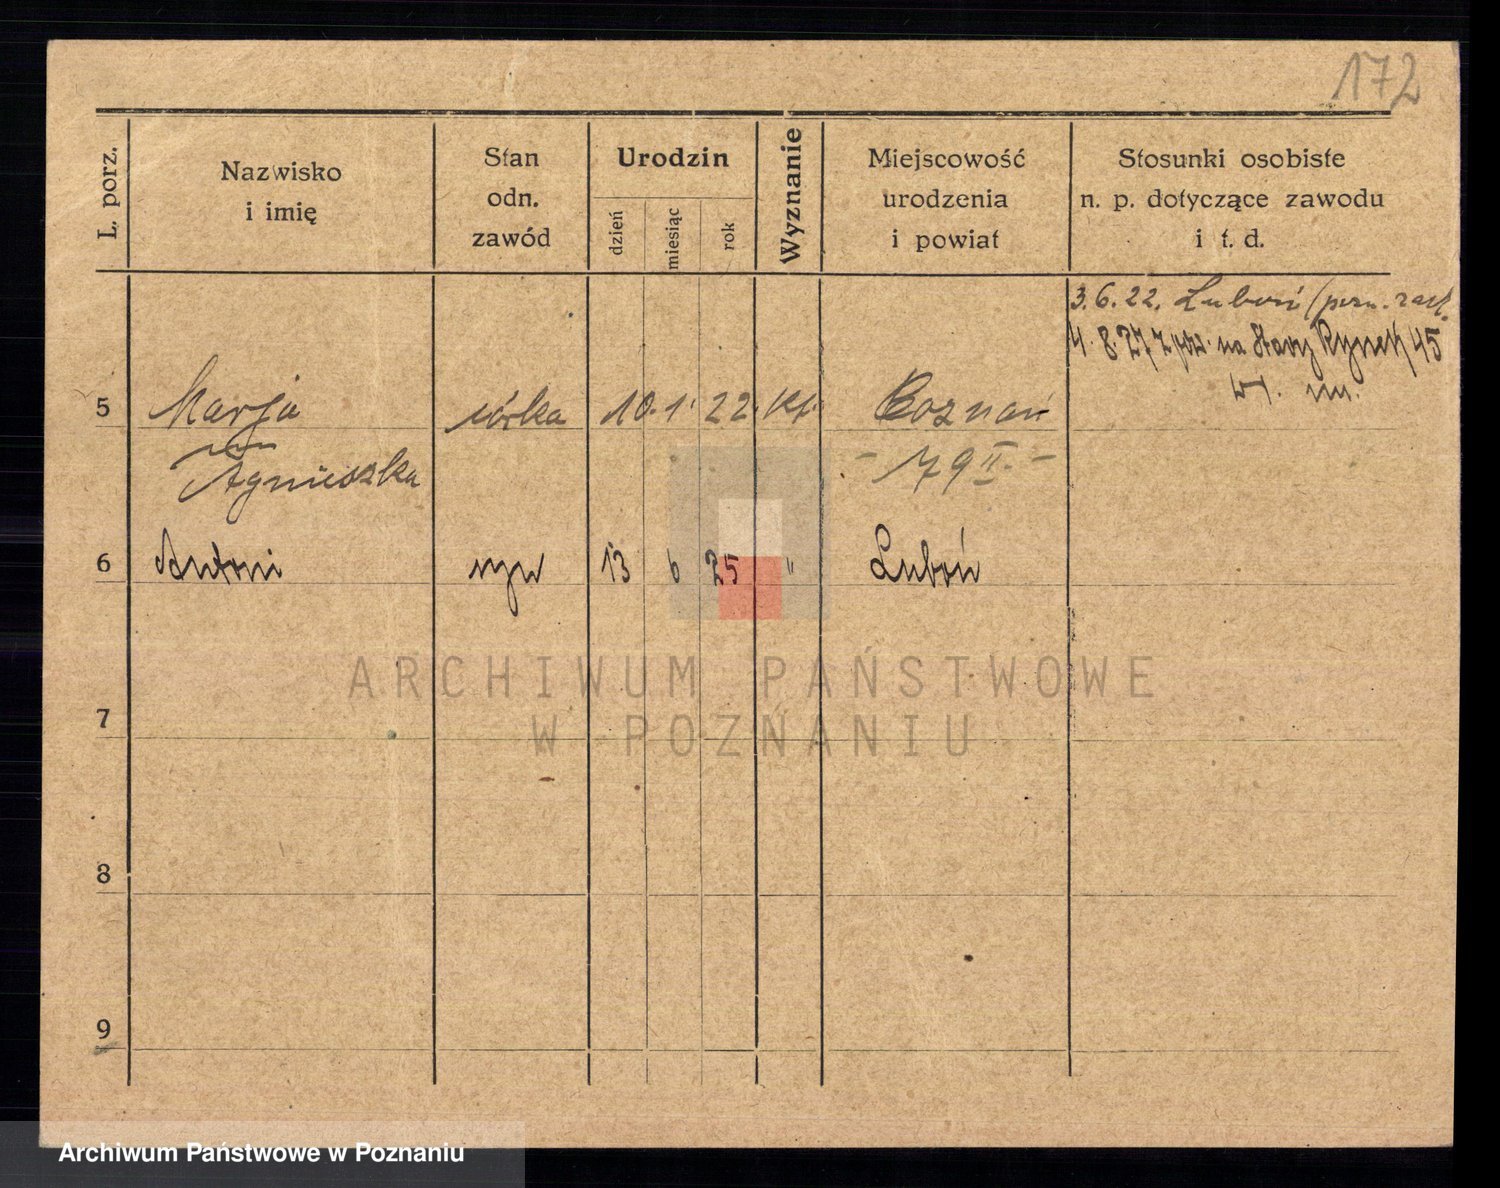 172
L. porz.
Nazwisko
i imię
Stan
odn.
zawód
Urodzin
dzień
miesiąc
rok
Wyznanie
Miejscowość
urodzenia
i powiat
Stosunki osobiste
n. p. dotyczące zawodu
i t. d.
3.6.22. Luboń (pozn. zach.
4.8.27 na Stary Rynek 45
5 Marja córka 10. 1. 22. kt. Poznań
Agnieszka - 79 II. -
6 Antoni syn 13 6 25 " Luboń
7
8
9
ARCHIWUM PAŃSTWOWE
W POZNANIU
Archiwum Państwowe w Poznaniu